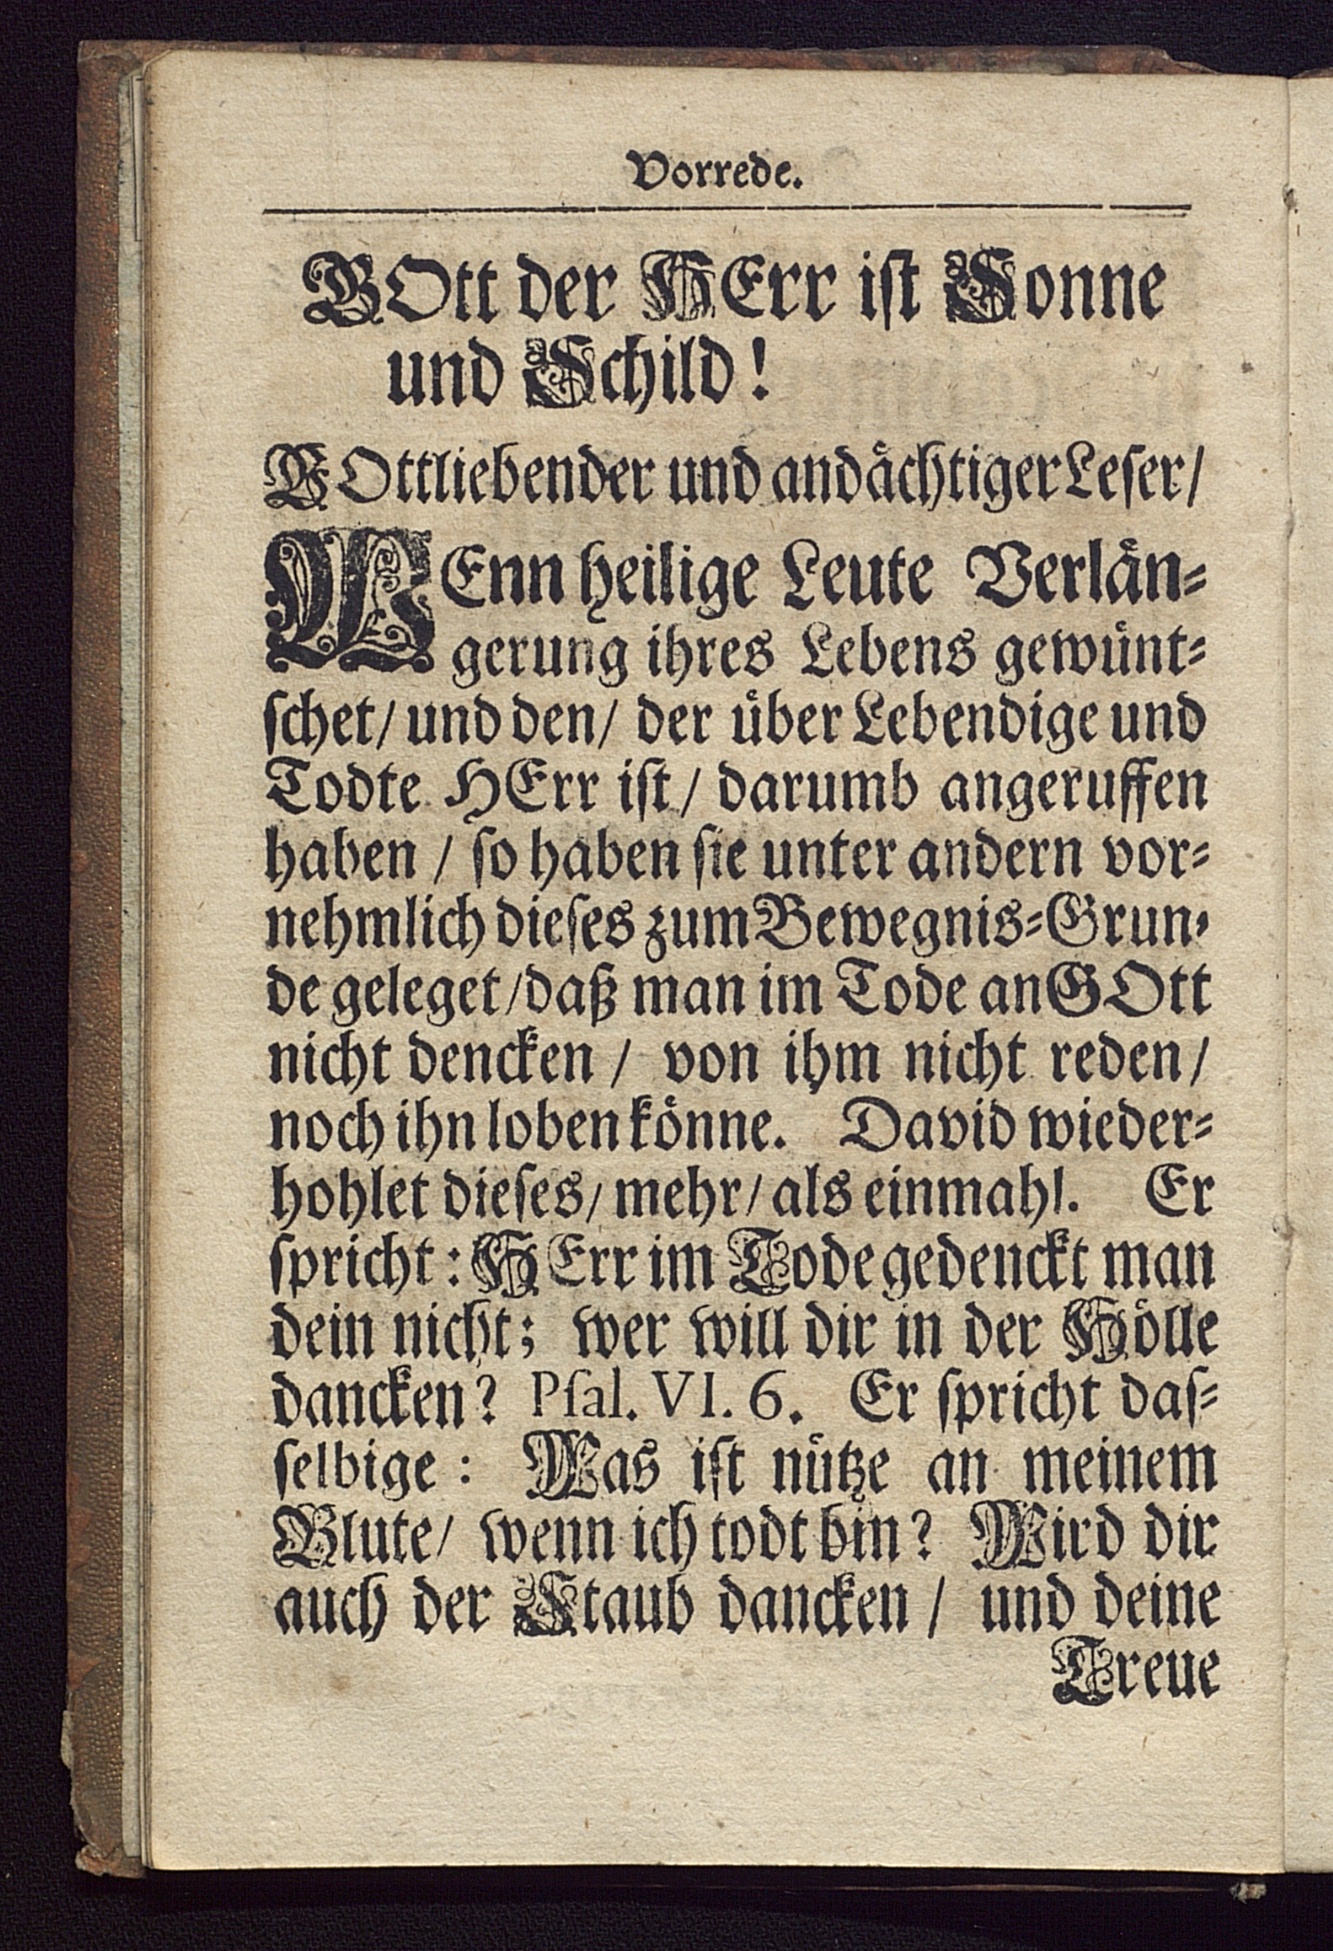 Vorrede.
GOtt der HErr iſt Sonne
und Schild!
GOttliebender und andaͤchtiger Leſer/
WEnn heilige Leute Verlaͤn⸗
gerung ihres Lebens gewuͤnt⸗
ſchet/ und den/ der uͤber Lebendige und
Todte HErr iſt/ darumb angeruffen
haben / ſo haben ſie unter andern vor⸗
nehmlich dieſes zum Bewegnis⸗Grun⸗
de geleget/ daß man im Tode an GOtt
nicht dencken / von ihm nicht reden/
noch ihn loben koͤnne. David wieder⸗
hohlet dieſes/ mehr/ als einmahl. Er
ſpricht: HErr im Tode gedenckt man
dein nicht; wer will dir in der Hoͤlle
dancken? Pſal. VI. 6. Er ſpricht daſ⸗
ſelbige: Was iſt nuͤtze an meinem
Blute/ wenn ich todt bin? Wird dir
auch der Staub dancken / und deine
Treue